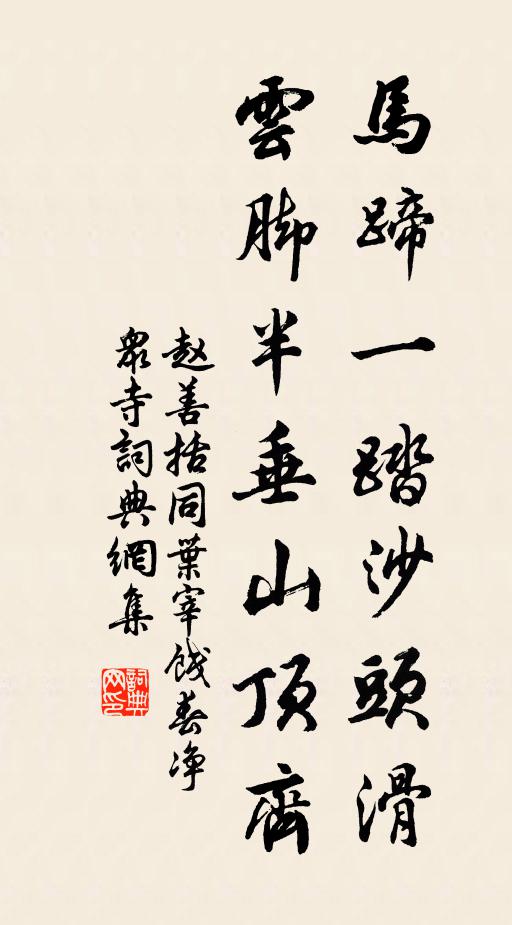 馬蹄一踏沙頭滑
雲脚半垂山頂齊
赵善括同葉宰餞春净
眾寺詞典網集
詞典网印